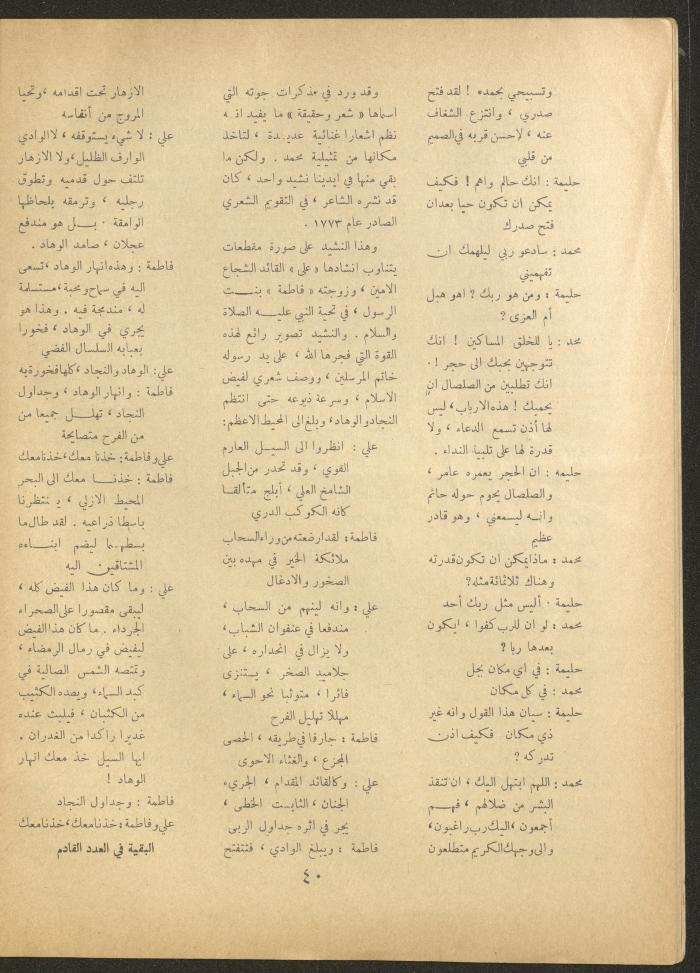 وتسبيحي بحمده ! لقد فتح
صدري ، وانتزع الشغاف
عنه ، لاحسن قربه في الصميم
من قلبي
حليمة : انك حالم واهم ! فكيف
يمكن ان تكون حيا بعدان
فتح صدرك
محمد : سادعو ربي ليلهمك ان
تفهميني
حليمة : ومن هو ربك ? اهو هبل
أم العزى ?
محمد : يا للخلق المساكين ! انك
تتوجهين بحبك الى حجر ! .
انك تطلبين من الصلصال ان
يحميك ! هذه الارباب ، ليس
لها أذن تسمع الدعاء ، ولا
قدرة لها على تلبية النداء .
حليمه : ان الحجر يعمره عامر ،
والصلصال يحوم حوله حائم
وانه ليسمعني ، وهو قادر
عظيم
محمد : ماذا يمكن ان تكون قدرته
وهناك ثلاثمائة مثله ?
حليمة . أليس مثل ربك أحد
محمد : لو ان للرب كفوا ، ايكون
بعدها ربا ?
حليمة : في اي مكان يحل
محمد : في كل مكان
حليمة : سيان هذا القول وانه غير
ذي مكان فكيف اذن
تدركه ?
محمد : اللهم ابتهل اليك ، ان تنقذ
البشر من ضلالهم ، فهم
أجمعون ، اليك رب راغبون ،
والى وجهك الكريم متطلعون
وقد ورد في مذكرات جوته التي
اسماها « شعر وحقيقة » ما يفيد انه
نظم اشعارا غنائية عديدة ، لتاخذ
مكانها من تمثيلية محمد . ولكن ما
بقي منها في ايدينا نشيد واحد ، كان
قد نشره الشاعر ، في التقويم الشعري
الصادر عام ١٧٧٣ .
وهذا النشيد على صورة مقطعات
يتناوب انشادها « علي » القائد الشجاع
الامين ، وزوجته « فاطمة » بنت
الرسول ، في تحية النبي عليه الصلاة
والسلام . والنشيد تصوير رائع لهذه
القوة التي فجرها الله ، على يد رسوله
خاتم المرسلين ، ووصف شعري لفيض
الاسلام ، وسرعة ذيوعه حتى انتظم
النجاد والوهاد ، وبلغ الى المحيط الاعظم :
علي : انظروا الى السيل العارم
القوي ، وقد تحدر من الجبل
الشامخ العلي ، أبلج متألقا
كانه الكوكب الدري
فاطمة : لقد ارضعته من وراء السحاب
ملائكة الخير في مهده بين
الصخور والادغال
علي : وانه لينهم من السحاب ،
مندفعا في عنفوان الشباب ،
ولا يزال في انحداره ، على
جلاميد الصخر ، يستنزى
فائرا ، متوثبا نحو السماء ،
مهللا تهليل الفرح
فاطمة : جارفا في طريقه ، الحصى
المجزع ، والغثاء الاحوى
علي : وكالقائد المقدام ، الجريء
الجنان ، الثابت الخطى ،
يجر في اثره جداول الربى
فاطمة : ويبلغ الوادي ، فتتفتح
الازهار تحت اقدامه ، وتحيا
المروج من أنفاسه
علي : لا شيء يستوقفه ، لا الوادي
الوارف الظليل ، ولا الازهار
تلتف حول قدميه وتطوق
رجليه ، وترمقه بلحاظها
الوامقة . بل هو مندفع
عجلان ، صامد الوهاد .
فاطمة : وهذه انهار الوهاد ، تسعى
اليه في سماح ومحبة ، مستسلمة
له ، مندمجة فيه . وهذا هو
يجري في الوهاد ، فخورا
بعبابه السلسال الفضي
علي : الوهاد والنجاد ، كلها فخورة به
فاطمة : وانهار الوهاد ، وجداول
النجاد ، تهلل جميعا من
من الفرح متصايحة
علي وفاطمة : خذنا معك ، خذنا معك
فاطمة : خذنا معك الى البحر
المحيط الازلي ، ينتظرنا
باسطا ذراعيه . لقد طال ما
بسطهما ليضم ابناءه
المشتاقين اليه
علي : وما كان هذا الفيض كله ،
ليبقى مقصورا على الصحراء
الجرداء . ما كان هذا الفيض
ليفيض في رمال الرمضاء ،
وتمتصه الشمس الصالية في
كبد السماء ، ويصده الكثيب
من الكثبان ، فيلبث عنده
غديرا راكدا من الغدران .
ايها السيل خذ معك انهار
الوهاد !
فاطمة : وجداول النجاد
علي وفاطمة : خذنا معك ، خذنا معك
البقية في العدد القادم
٤٠